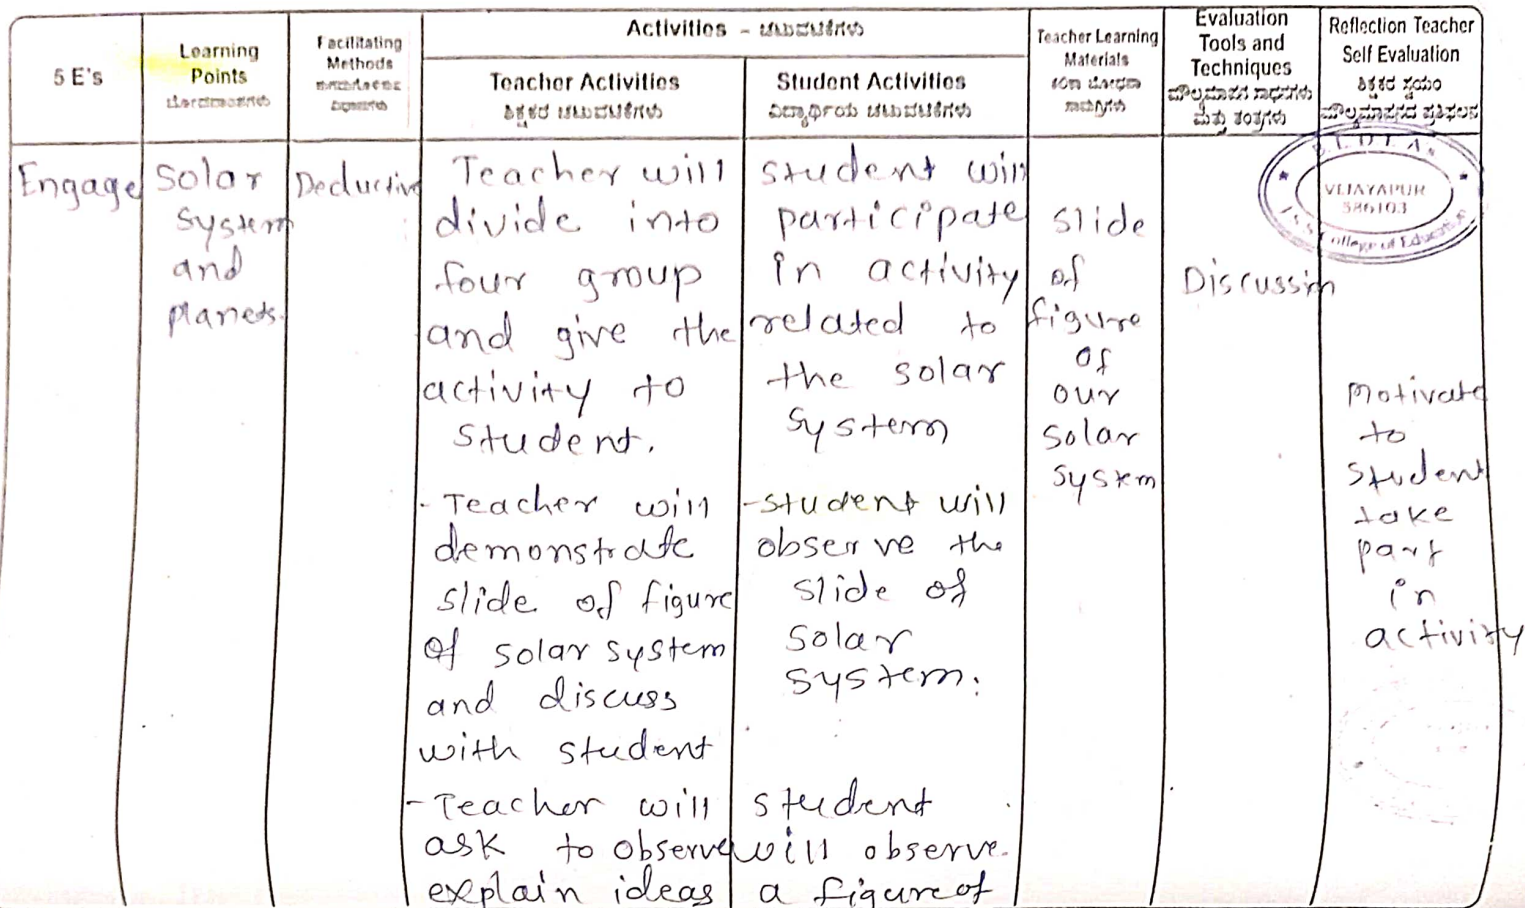 5 E's
Learning
Points
Facilitating
Methods
Activities - ಚಟುವಟಿಕೆಗಳು
Teacher Activities
ಶಿಕ್ಷಕರ ಚಟುವಟಿಕೆಗಳು
Student Activities
ವಿದ್ಯಾರ್ಥಿಯ ಚಟುವಟಿಕೆಗಳು
Teacher Learning
Materials
ಕಲಿಕಾ ಬೋಧನಾ
ಸಾಮಗ್ರಿಗಳು
Evaluation
Tools and
Techniques
ಮೌಲ್ಯಮಾಪನ ಸಾಧನಗಳು
ಮತ್ತು ತಂತ್ರಗಳು
Reflection Teacher
Self Evaluation
ಶಿಕ್ಷಕರ ಸ್ವಯಂ
ಮೌಲ್ಯಮಾಪನದ ಪ್ರತಿಫಲನ
Engage
Solar
System
and
planets.
Deductive
Teacher will
divide into
four group
and give the
activity to
Student.
- Teacher will
demonstrate
slide of figure
of solar system
and discuss
with student
- Teacher will
ask to observe
explain ideas
student will
participate
in activity
related to
the solar
System
- student will
observe the
slide of
solar
system.
student
will observe.
a figure of
slide
of
figure
of
our
solar
system
Discussion
VIJAYAPUR
586103
College of Education
Motivate
to
student
take
part
in
activity